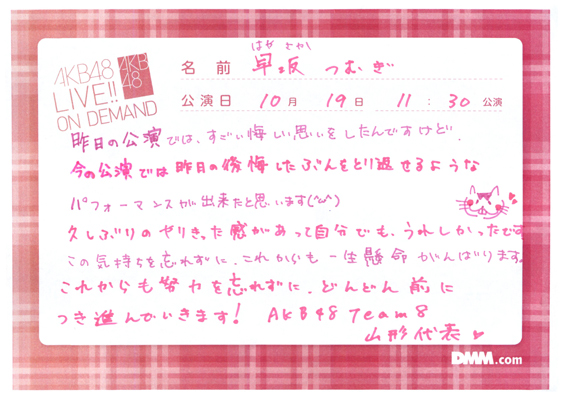 AKB48
LIVE!!
ON DEMAND
AKB
48
はや さか
名前 早坂 つむぎ
公演日 10月 19日 11:30 公演
昨日の公演では、すごい悔しい思いをしたんですけど、
今の公演では昨日の後悔したぶんをとり返せるような
パフォーマンスが出来たと思います(^ω^)
久しぶりのやりきった感があって自分でも、うれしかったです
この気持ちを忘れずに、これからも一生懸命がんばります。
これからも努力を忘れずに、どんどん前に
つき進んでいきます! AKB48 Team8
山形代表
DMM.com